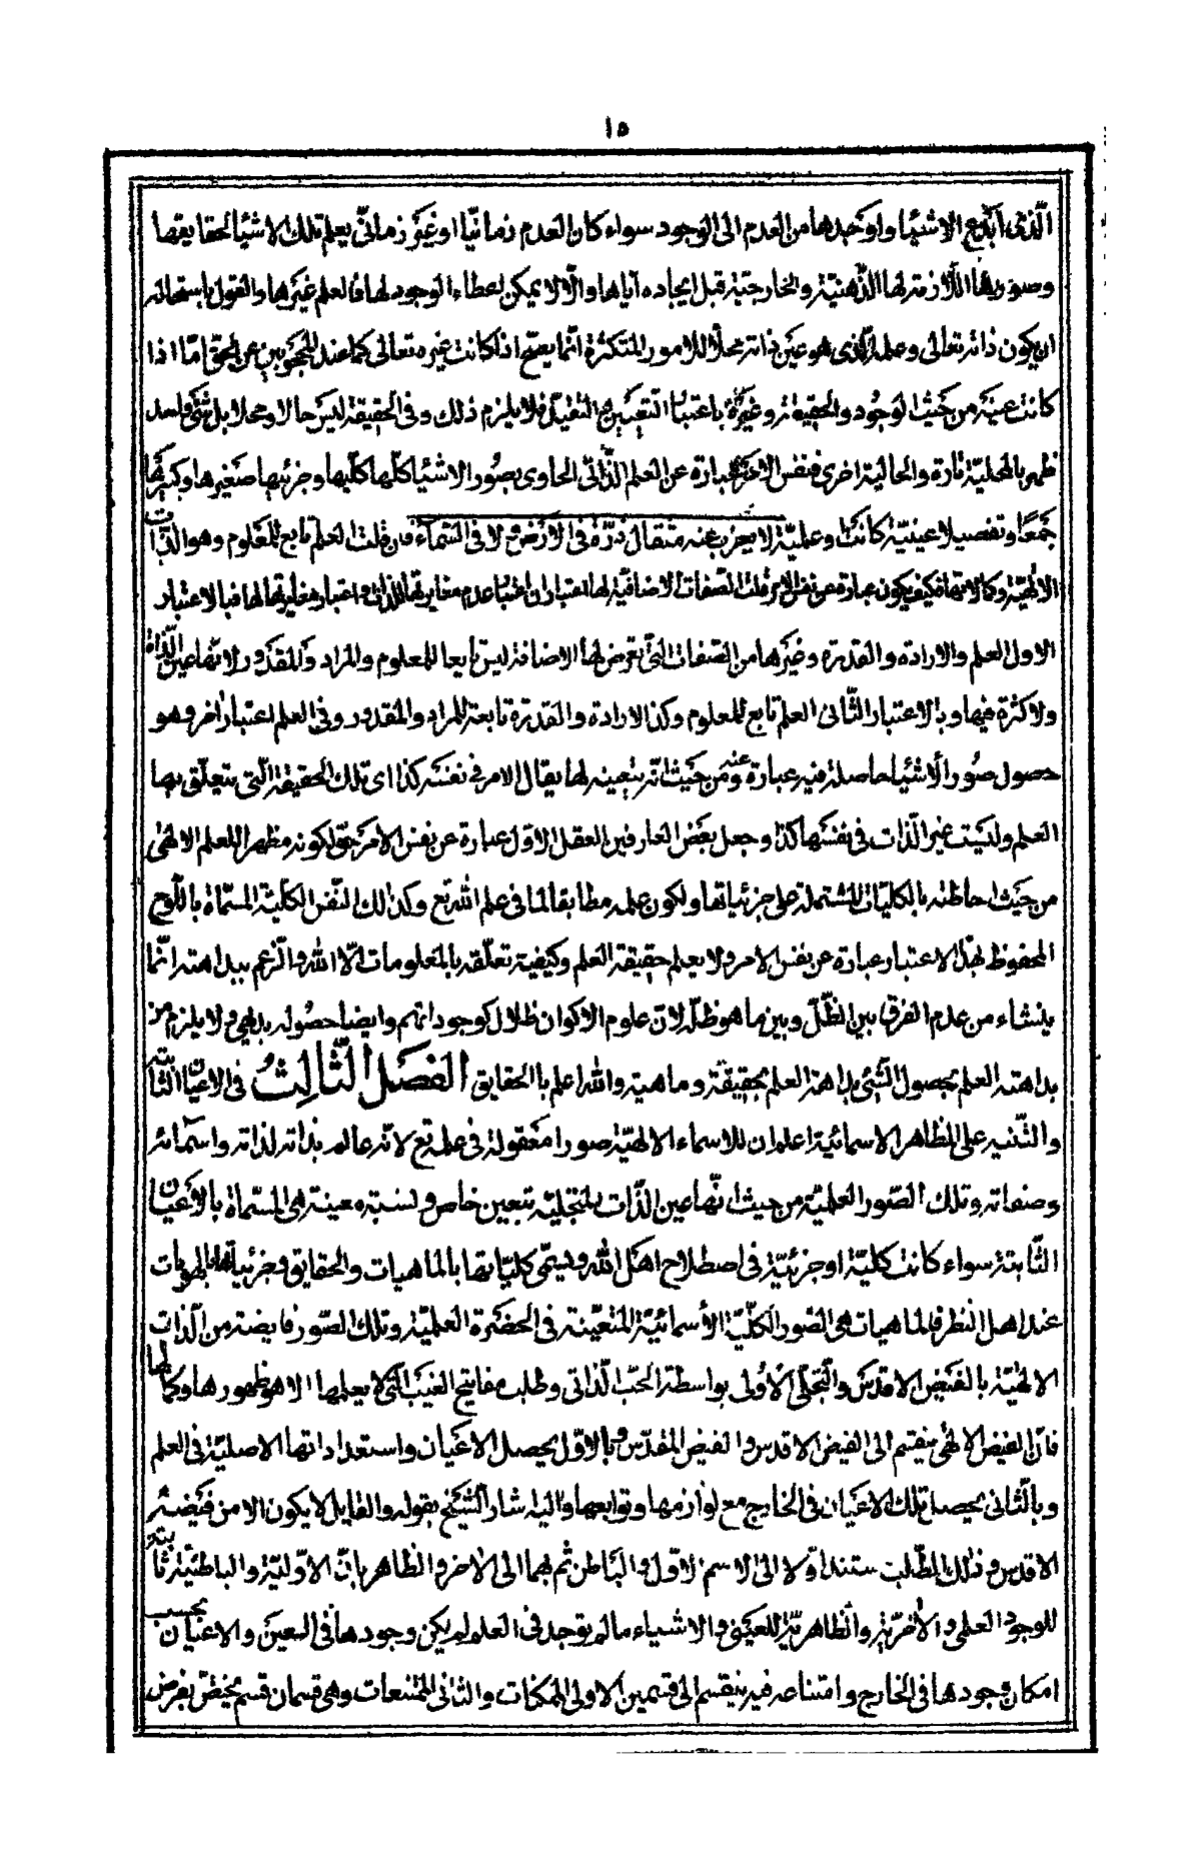 ١٥
الّذى ابدع الاشياء واوجدها من العدم الى الوجود سواء كان العدم زمانيّا او غير زمانىّ يعلم تلك الاشياء بحقايقها
وصورها اللّازمة لها الذّهنيّة والخارجيّة قبل ايجاده ايّاها والّا لا يمكن اعطاء الوجود لها فالعلم غيرها والقول باستحالة
ان يكون ذاته تعالى وعلمه الّذى هو عين ذاته محلّا للامور المتكثّرة انّما يصحّ اذا كانت غيره تعالى كما عند المحجوبين عن الحقّ امّا اذا
كانت عينه من حيث الوجود والحقيقة وغيره باعتبار التعيّن والتقيّد فلا يلزم ذلك وفى الحقيقة ليس حالا ومحلا بل شئ واحد
ظهر بالمحليّة تارة والحاليّة اخرى فنفس الامر عبارة عن العلم الذّاتى الحاوى بصور الاشياء كلّها كلّيها وجزئيها صغيرها وكبيرها
جمعا وتفصيلا عينيّة كانت او علميّة لا يعزب عنه مثقال ذرّة فى الارض ولا فى السّماء فان قلت العلم تابع للمعلوم وهو الذّات
الالهيّة وكمالاتها فكيف يكون عبارة عن نفس الامر قلت الصّفات الاضافيّة لها اعتباران اعتبار عدم مغايرتها للذّات واعتبار مغايرتها لها فبالاعتبار
الاول العلم والارادة والقدرة وغيرها من الصّفات الّتى تعرض لها الاضافة ليس تابعا للمعلوم والمراد والمقدور لانّها عين الذّات
ولا كثرة فيها وبالاعتبار الثّانى العلم تابع للمعلوم وكذا الارادة والقدرة تابعة للمراد والمقدور وفى العلم اعتبار اخر وهو
حصول صور الاشياء حاصلة فيه عبارة عنه ومن حيث انّه يتعينه لها يقال الامر فى نفسه كذا اى تلك الحقيقة الّتى يتعلّق بها
العلم وليست غير الذّات فى نفسها كذا وجعل بعض العارفين العقل الاوّل عبارة عن نفس الامر حق لكونه مظهرا للعلم الالهى
من حيث احاطته بالكليّات المشتملة على جزئياتها ولكون علمه مطابقا لما فى علم الله تع وكذلك النّفس الكلّيّة المسمّاة باللّوح
المحفوظ بهذا الاعتبار عبارة عن نفس الامر ولا يعلم حقيقة العلم وكيفية تعلّقه بالمعلومات الّا الله والزّعم ببداهته انّما
ينشاء من عدم الفرق بين الظّلّ وبين ما هو ظلّه لان علوم الاكوان ظلال كوجوداتهم وايضا حصوله بديهى ولا يلزم من
بداهته العلم بحصول الشّئ بداهة العلم بحقيقته وماهيته والله اعلم بالحقايق الفصل الثّالث فى الاعيان الثّابتة
والتّنبيه على المظاهر الاسمائيّة اعلم ان للاسماء الالهيّة صورا معقولة فى علمه تع لانّه عالم بذاته لذاته واسمائه
وصفاته وتلك الصّور العلميّة من حيث انّها عين الذّات المتجلّية بتعين خاص ونسبة معينة هى المسمّاة بالاعيان
الثّابتة سواء كانت كليّة او جزئيّة فى اصطلاح اهل الله ويسمّى كليّاتها بالماهيات والحقايق وجزئياتها بالهويات
عند اهل النظر فالماهيات هى الصّور الكلّيّة الأسمائيّة المتعيّنة فى الحضرة العلميّة وتلك الصّور فايضة من الذّات
الالهيّة بالفيض الاقدس والتّجلّى الأوّل بواسطة الحبّ الذّاتى وطلب مفاتيح الغيب الّتى لا يعلمها الا هو ظهورها وكمالها
فانّ الفيض الالهى ينقسم الى الفيض الاقدس والفيض المقدّس وبالاوّل يحصل الاعيان واستعداداتها الاصليّة فى العلم
وبالثّانى يحصل تلك الاعيان فى الخارج مع لوازمها وتوابعها واليه اشار الشّيخ بقوله والقابل لا يكون الا من فيضه
الاقدس وذلك الطّلب مستند اوّلا الى الاسم الاوّل والباطن ثم بهما الى الاخر والظاهر بانّ الاوّليّة والباطنيّة ثابتة
للوجود العلمى والأخريّة والظاهريّة للعينى والاشياء ما لم يوجد فى العلم لم يكن وجودها فى العين والاعيان بحسب
امكان وجودها فى الخارج وامتناعه فيه ينقسم الى قسمين الاولى الممكنات والثانى الممتنعات وهى قسمان قسم يختصّ بفرض